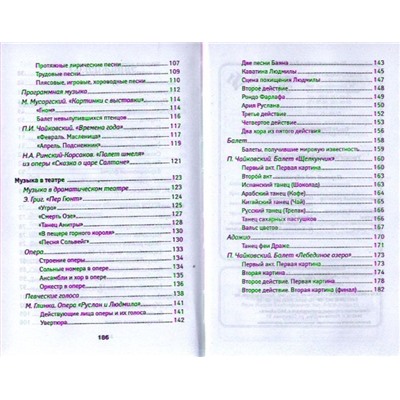 Протяжные лирические песни 107
Трудовые песни 109
Плясовые, игровые, хороводные песни 110
Программная музыка 112
М. Мусоргский. «Картинки с выставки» 114
«Гном» 114
Балет невылупившихся птенцов 116
П.И. Чайковский. «Времена года» 117
«Февраль. Масленица» 117
«Апрель. Подснежник» 119
Н.А. Римский-Корсаков. «Полет шмеля»
из оперы «Сказка о царе Салтане» 121
Музыка в театре 123
Музыка в драматическом театре 123
Э. Григ. «Пер Гюнт» 123
«Утро» 125
«Смерть Озе» 127
«Танец Анитры» 128
«В пещере горного короля» 130
«Песня Сольвейг» 133
Опера 134
Строение оперы 135
Сольные номера в опере 136
Ансамбли и хор в опере 136
Оркестр в опере 136
Певческие голоса 138
М. Глинка. Опера «Руслан и Людмила» 141
Действующие лица оперы и их голоса 141
Увертюра 142
186
Две песни Баяна 143
Каватина Людмилы 145
Сцена похищения Людмилы 148
Второе действие 148
Рондо Фарлафа 149
Ария Руслана 151
Третье действие 153
Четвертое действие 153
Два хора из пятого действия 155
Балет 157
Балеты, получившие мировую известность 157
П. Чайковский. Балет «Щелкунчик» 160
Первый акт. Первая картина 160
Второй акт 162
Испанский танец (Шоколад) 162
Арабский танец (Кофе) 163
Китайский танец (Чай) 165
Русский танец (Трепак) 166
Танец сахарных пастушков 168
Вальс цветов 170
Адажио 172
Танец феи Драже 173
П. Чайковский. Балет «Лебединое озеро» 175
Первый акт. Первая картина 176
Вторая картина 176
Второе действие. Первая картина 178
Второе действие. Вторая картина (финал) 182